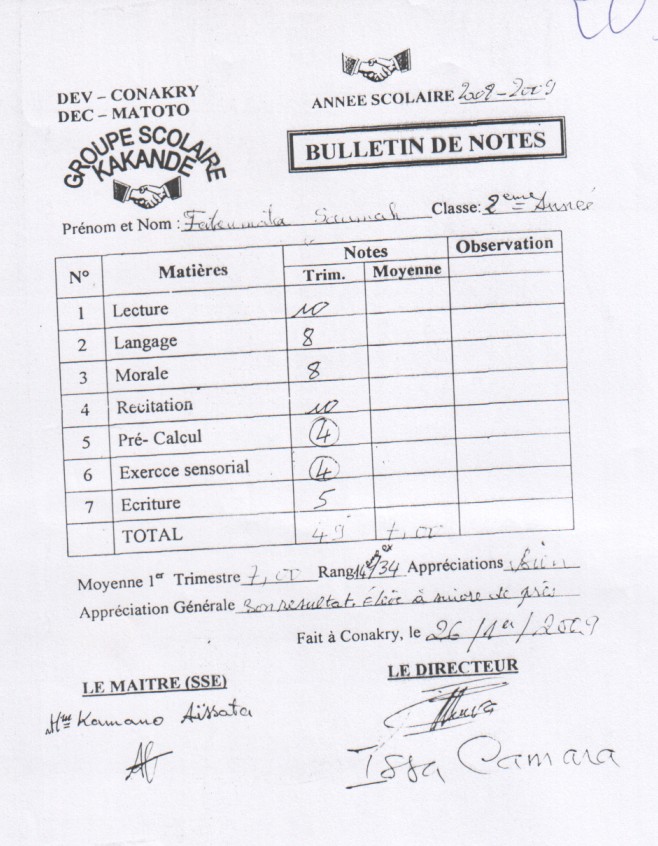 DEV – CONAKRY
DEC – MATOTO
GROUPE SCOLAIRE
KAKANDE
ANNEE SCOLAIRE 2008-2009
BULLETIN DE NOTES
Prénom et Nom : Fatoumata Soumah Classe: 2eme Année
N° Matières Notes Observation
Trim. Moyenne
1 Lecture 10
2 Langage 8
3 Morale 8
4 Recitation 10
5 Pré- Calcul 4
6 Exercce sensorial 4
7 Ecriture 5
TOTAL 49 7,00
Moyenne 1er Trimestre 7,00 Rang 14e ex/34 Appréciations Bien
Appréciation Générale Bon résultat, élève à suivre de près
Fait à Conakry, le 26/1er/2009
LE MAITRE (SSE) LE DIRECTEUR
Mme Kamano Aïssata
Issa Camara